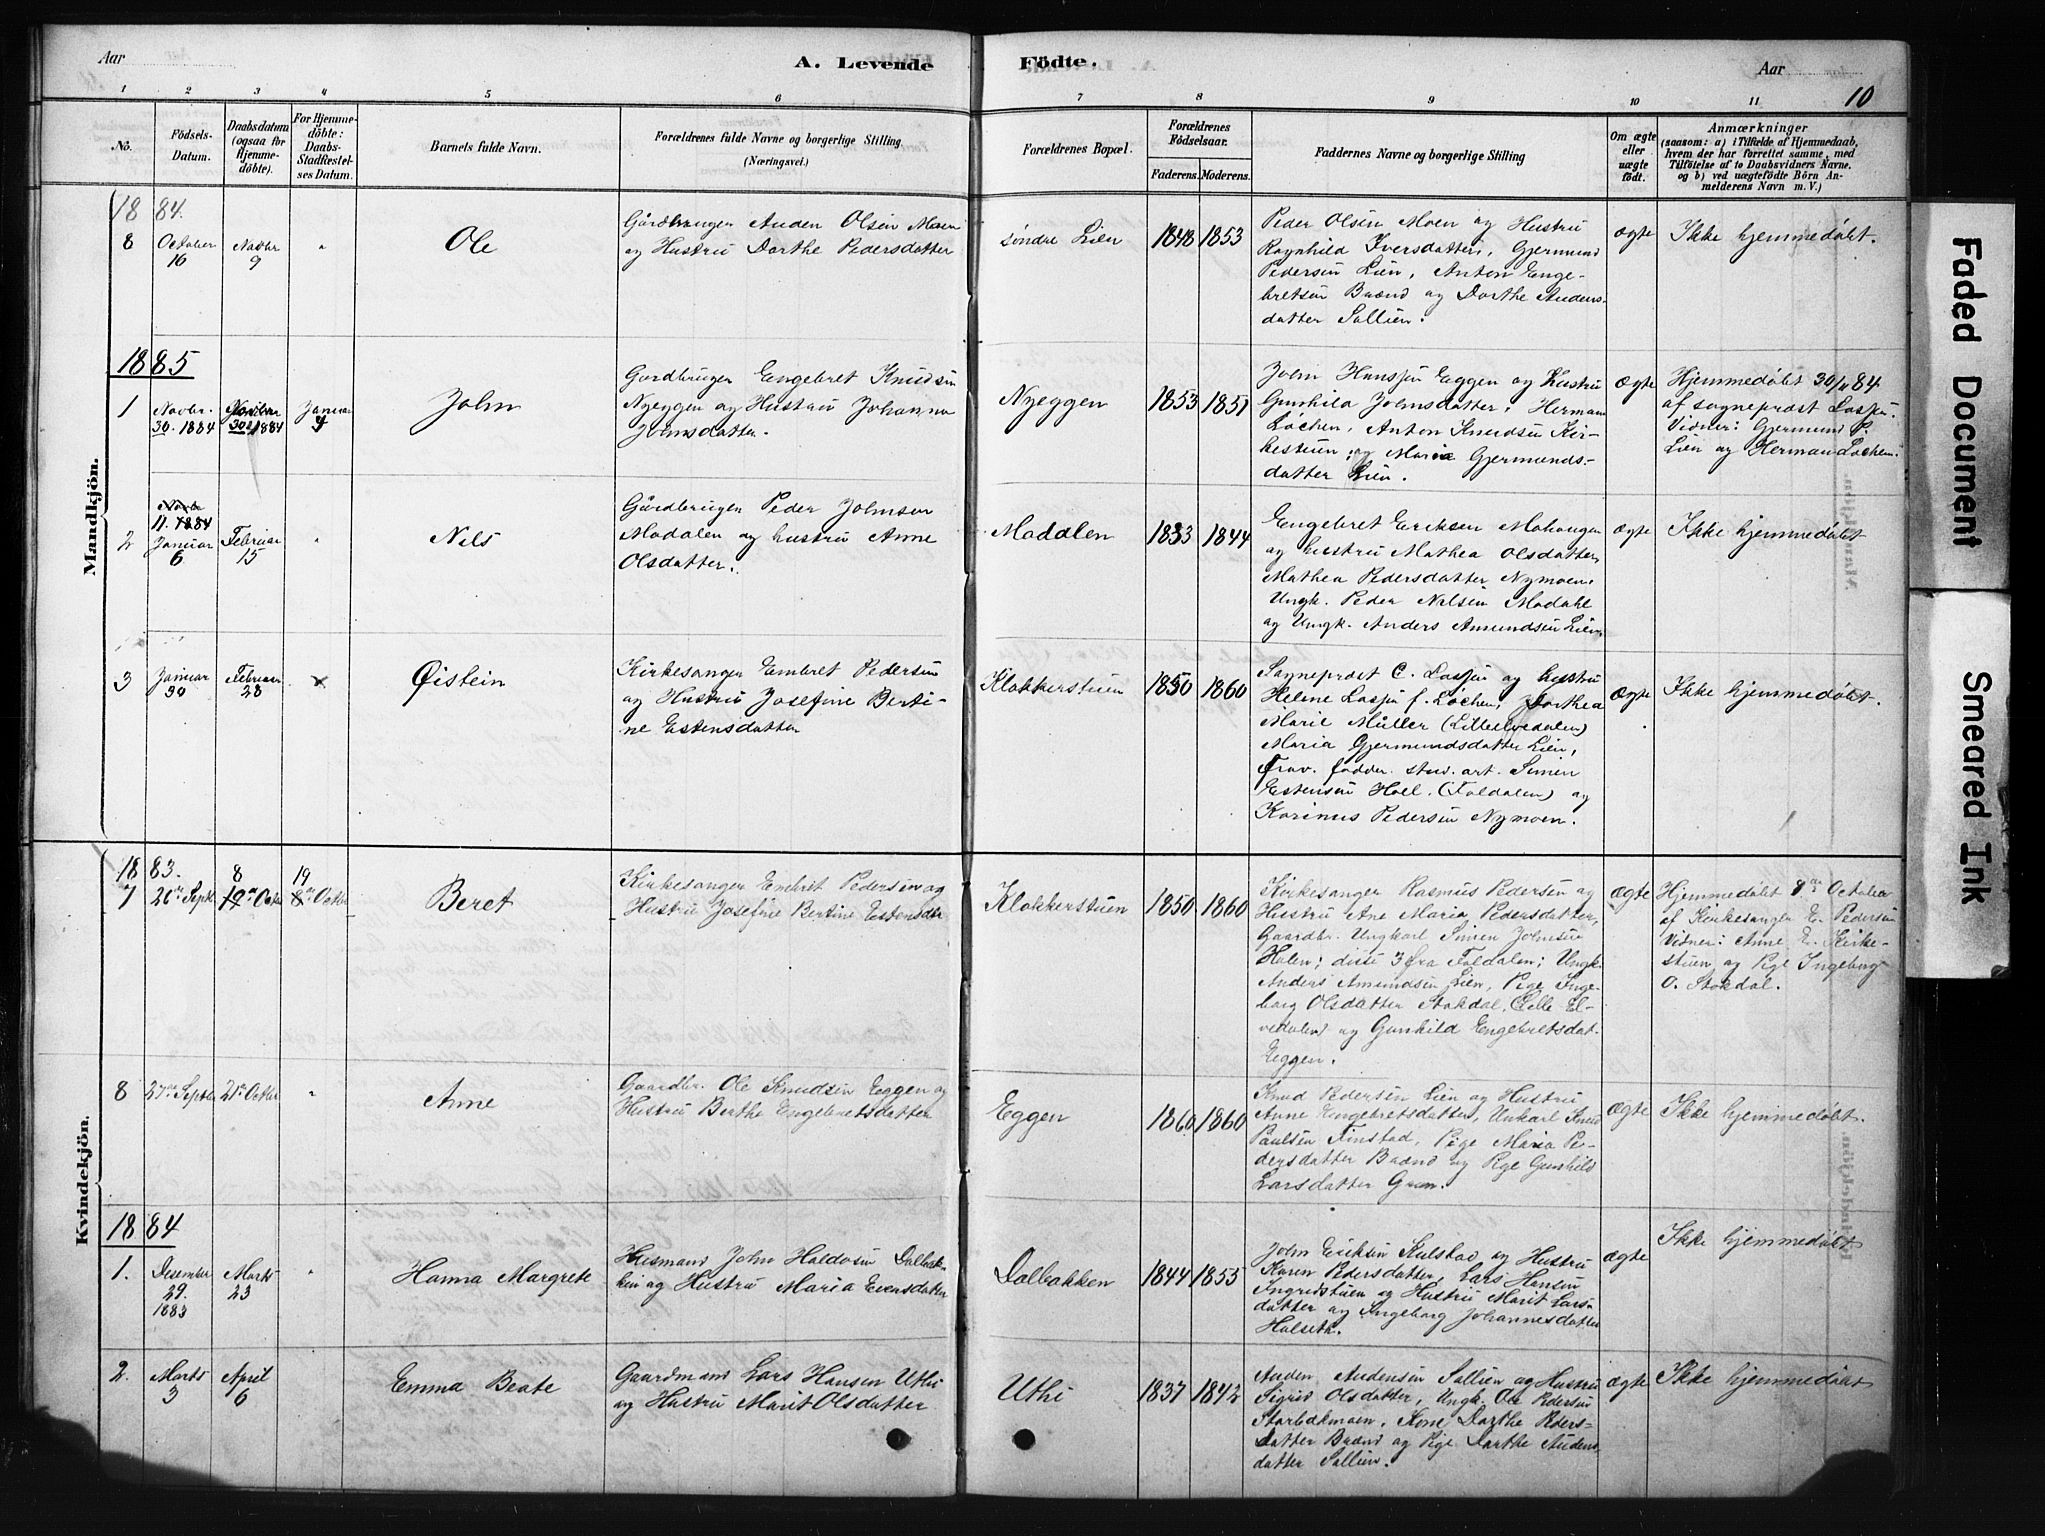 Aar
A. Levende
Födte.
Aar
10
1 2 3 4 5 6 7 8 9 10 11
No.
Födsels-
Datum.
Daabsdatum
(ogsaa for
Hjemme-
döbte).
For Hjemme-
döbte:
Daabs-
Stadfæstel-
ses Datum.
Barnets fulde Navn.
Forældrenes fulde Navne og borgerlige Stilling
(Næringsvei.)
Forældrenes Bopæl.
Forældrenes
Födselsaar.
Faderens. Moderens.
Faddernes Navne og borgerlige Stilling
Om ægte
eller
uægte
födt.
Anmærkninger
(saasom: a) i Tilfælde af Hjemmedaab,
hvem der har forrettet samme, med
Tilföielse af to Daabsvidners Navne.
og b) ved uægtefödte Börn An-
melderens Navn m. V.)
Mandkjön.
1884.
8
October
16
Novbr
9
"
Ole
Gårdbruger Auden Olsen Moen
og Hustru Dorthe Pedersdatter
søndre Lien
1848 1853
Peder Olsen Moen og Hustru
Ragnhild Iversdatter, Gjermund
Pedersen Lien, Anton Enge-
bretsen Brænd og Dorthe Audens-
datter Sollien.
ægte
Ikke hjemmedøbt.
1885
1
Novbr.
30. 1884
Novbr
30 1884
Januar
John
Gardbruger Engebret Knudsen
Nyeggen og Hustru Johanna
Johnsdatter.
Nyeggen
1853 1851
John Hansen Eggen og Hustru
Gunhild Johnsdatter, Herman
Løchen, Anton Knudsen Kir-
kestuen, og Maria Gjermunds-
datter Lien.
ægte
Hjemmedøbt 30/11 84
af sogneprest Lasson.
Vidner: Gjermund P.
Lien og Herman Løchen.
2
Novbr
11. 1884
Januar
6
Februar
15
"
Nils
Gårdbruger Peder Johnsen
Modalen og hustru Anne
Olsdatter.
Modalen
1833 1844
Engebret Eriksen Mohaugen
og hustru Mathea Olsdatter,
Mathea Pedersdatter Nymoen,
Ungk. Peder Nilsen Modahl
og Ungk. Anders Amundsen Lien.
ægte
Ikke hjemmedøbt
3
Januar
30
Februar
23
Øistein
Kirkesanger Embret Pedersen
og Hustru Josefine Berti-
ne Estensdatter
Klokkerstuen
1850 1860
Sogneprest C. Lasson og hustru
Helene Lasson f. Løchen, Dorthea
Marie Müller (Lilleelvedalen)
Maria Gjermundsdatter Lien,
Frav. fadder. stud. art. Simen
Estensen Holl. (Foldalen) og
Karinus Pedersen Nymoen.
ægte
Ikke hjemmedøbt.
Kvindekjön.
1883.
7
26de Septb.
8
19de Octbr
19
8de Octbr
Beret
Kirkesanger Embret Pedersen og
Hustru Josefine Bertine Estensdtr
Klokkerstuen
1850 1860
Kirkesanger Rasmus Pedersen og
Hustru Ane Maria Pedersdatter,
Gaardbr. Ungkarl Simen Johnsen
Holen; disse 3 fra Foldalen; Ungk.
Anders Amundsen Lien, Pige Inge-
borg Olsdatter Stokdal, (Lille El-
vedalen) og Gunhild Engebretsdat.
Eggen.
ægte
Hjemmedøbt 8de October
af Kirkesanger E. Pedersen
Vidner: Anne E. Kirke-
stuen og Pige Ingeborg
O. Stokdal.
8
27de Septbr
21de Octbr
"
Anne
Gaardbr. Ole Knudsen Eggen og
Hustru Berthe Engebretsdatter
Eggen
1860 1860
Knud Pedersen Lien og Hustru
Anne Engebretsdatter, Unkarl Knud
Paulsen Finstad, Pige Maria Pe-
dersdatter Brænd og Pige Gunhild
Larsdatter
ægte
Ikke hjemmedøbt.
1884
1.
Desember
29.
1883
Marts
23
"
Hanna Margrete
Husmand John Haldosen Dalbak-
ken og Hustru Maria Evensdatter
Dalbakken
1844 1855
John Eriksen Kulstad og Hustru
Karen Pedersdatter, Lars Hansen
Ingridstuen og Hustru Marit Lars-
datter og Ingeborg Johannesdatter
Halseth.
ægte
Ikke hjemmedøbt
2.
Marts
3
April
6
Emma Beate
Gaardmand Lars Hansen Uthi
og Hustru Marit Olsdatter
Uthi
1837 1842
Auden Audensen Sollien og Hustru
Sigrid Olsdatter, Ungk. Ole Pedersen
Storbækmoen, Kone Dorthe Peders-
datter Brænd og Pige Dorthe Audens
datter Sollien.
ægte
Ikke hjemmedøbt
Faded Document
Smeared Ink